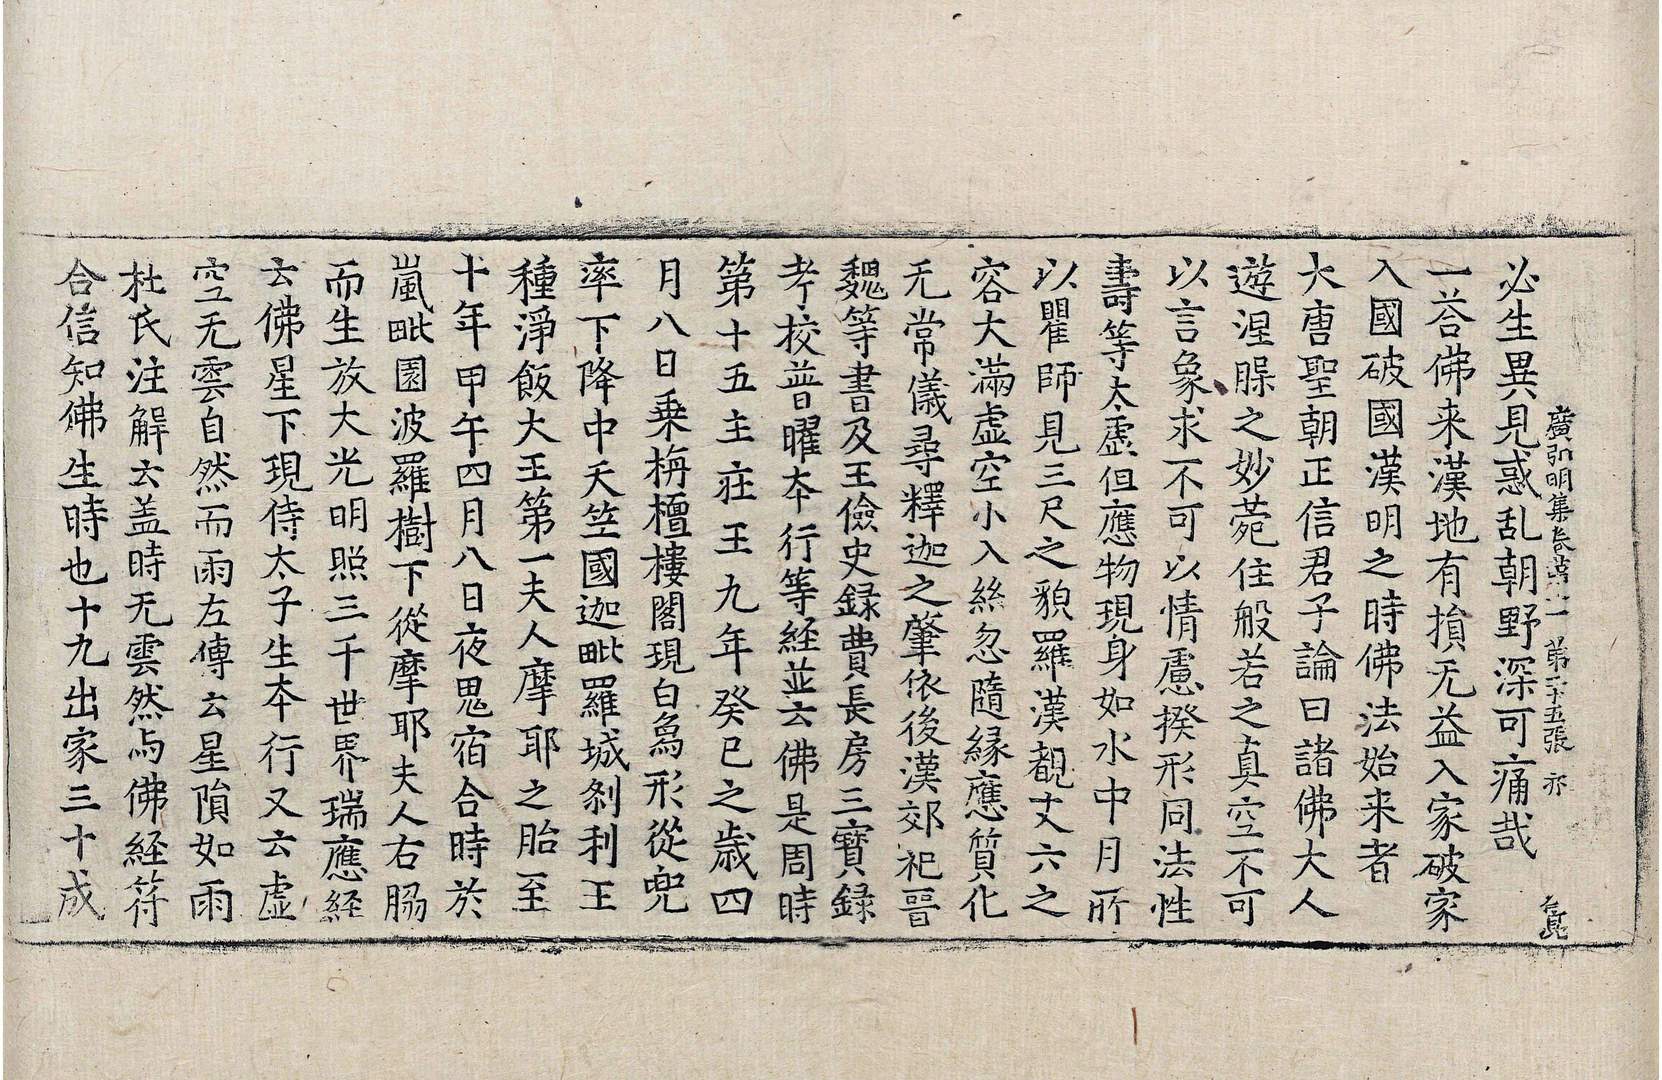 廣弘明集卷苐十一 第二十五張 亦
必生異見惑乱朝野深可痛哉
一荅佛来漢地有損无益入家破家
入國破國漢明之時佛法始来者
大唐聖朝正信君子論曰諸佛大人
遊涅槃之妙菀住般若之真空不可
以言象求不可以情慮揆形同法性
壽等太虛但應物現身如水中月所
以瞿師見三尺之貌羅漢覩丈六之
容大滿虛空小入絲忽隨緣應質化
无常儀尋釋迦之肇依後漢郊祀晉
魏等書及王儉史録費長房三寶録
考校普曜本行等経並云佛是周時
第十五主莊王九年癸巳之歳四
月八日乗栴檀樓閣現白為形從兜
率下降中天竺國迦毗羅城刹利王
種淨飯大王第一夫人摩耶之胎至
十年甲午四月八日夜鬼宿合時於
嵐毗園波羅樹下從摩耶夫人右脇
而生放大光明照三千世界瑞應経
云佛星下現侍太子生本行又云虛
空无雲自然而雨左傳云星隕如雨
杜氏注解云盖時无雲然与佛経符
合信知佛生時也十九出家三十成